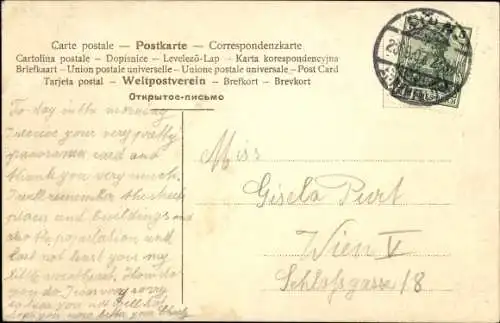 Carte postale — Postkarte — Correspondenzkarte
Cartolina postale - Dopisnice - Levelező-Lap - Karta korespondencyjna
Briefkaart - Union postale universelle - Unione postale universale - Post Card
Tarjeta postal - Weltpostverein - Brefkort - Brevkort
Открытое-письмо
To-day in the morning
I receive your very pretty
panorama card and
thank you very much.
I will remember the
places and buildings and
also the population and
last not least your my
little sweetheart. How do
you do. I am very sorry
Miss
Gisela Purt
Wien V
Schloßgasse 18